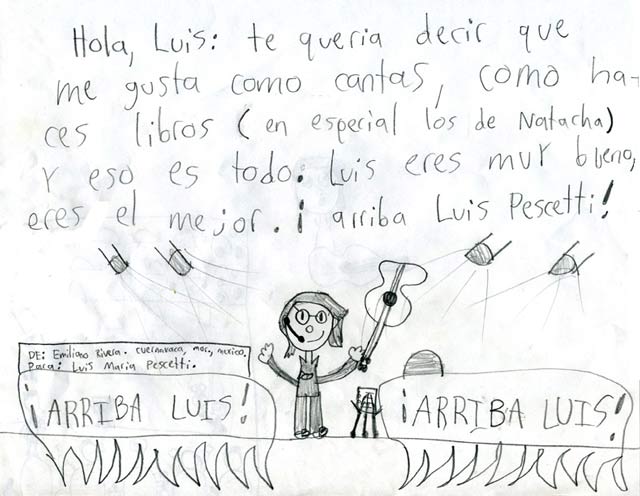 Hola, Luis: te queria decir que
me gusta como cantas, como ha-
ces libros (en especial los de Natacha)
Y eso es todo. Luis eres muy bueno,
eres el mejor. ¡arriba Luis Pescetti!
DE: Emiliano Rivera. cuernavaca, mor., mexico.
Para: Luis Maria Pescetti.
¡ARRIBA LUIS!
¡ARRIBA LUIS!